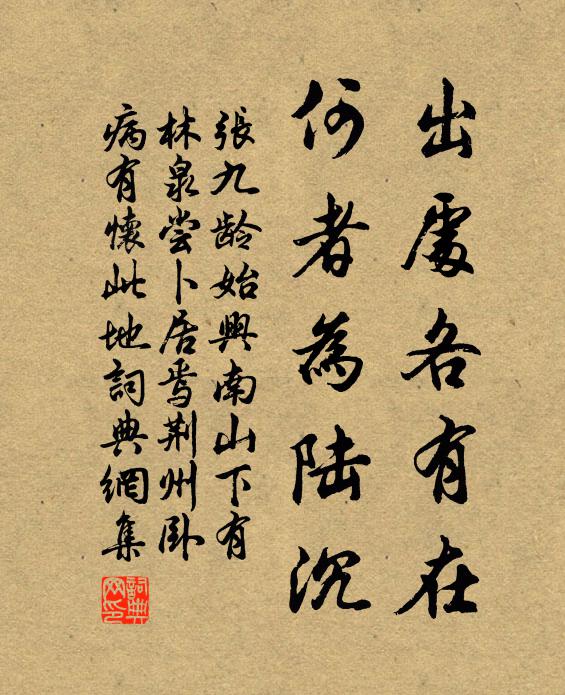 出處各有在
何者為陸沉
張九龄始興南山下有
林泉嘗卜居焉荆州卧
病有懷此地詞典網集
詞典网印